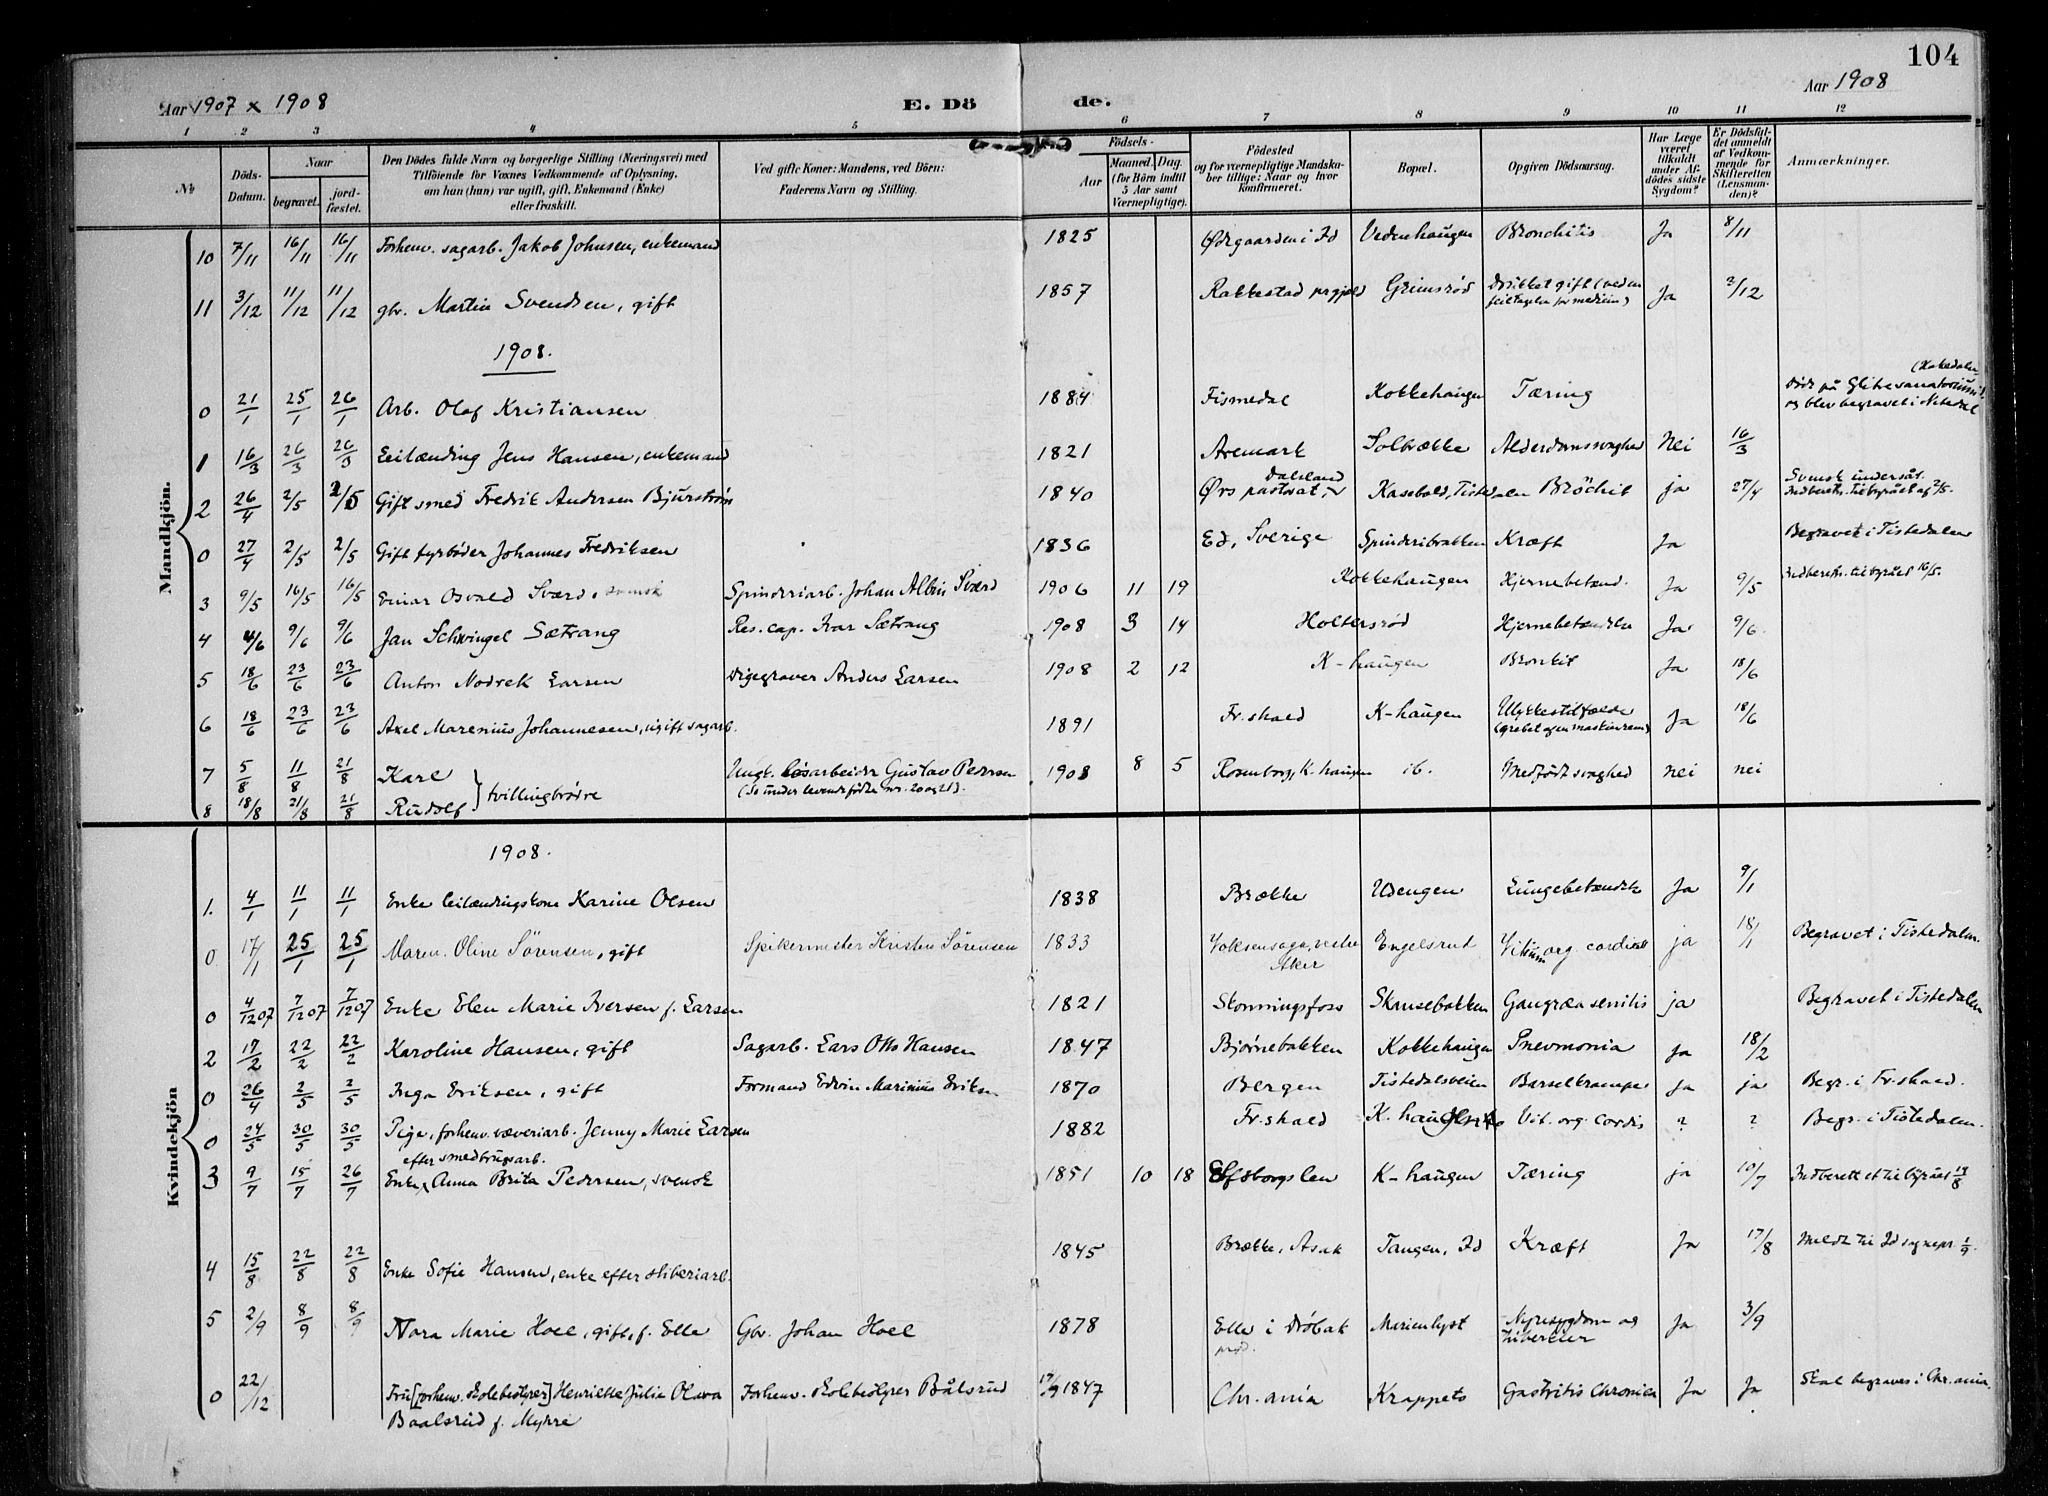 104
Aar 1907 x 1908 E. Dö de. Aar 1908
1 2 3 4 5 6 7 8 9 10 11 12
No
Döds-Datum.
Naar
begravet.
jord-fæstet.
Den Dödes fulde Navn og borgerlige Stilling (Næringsvei) med
Tilföiende for Voxnes Vedkommende af Oplysning,
om han (hun) var ugift, gift, Enkemand (Enke)
eller fraskilt.
Ved gifte Koner: Mandens, ved Börn:
Faderens Navn og Stilling.
Födsels-
Aar
Maaned. Dag.
(for Börn indtil
5 Aar samt
Værnepligtige).
Födested
og for værnepligtige Mandska-
ber tillige: Naar og hvor
Konfirmeret.
Bopæl.
Opgiven Dödsaarsag.
Har Læge
været
tilkaldt
under Af-
dödes sidste
Sygdom?
Er Dödsfal-
det anmeldt
af Vedkom-
mende for
Skifteretten
(Lensman-
den)?
Anmærkninger.
Mandkjön.
10 7/11 16/11 16/11 Forhenv. sagarb. Jakob Johnsen, enkemand 1825 Ødegaarden i Id Vedenhaugen Bronchitis Ja 8/11
11 3/12 11/12 11/12 gbr. Martin Svendsen, gift 1857 Rakkestad prgjeld Grimsrød Drukket gift (ved en feiltagelse for medicin) Ja 2/12
1908.
0 21/1 25/1 26/1 Arb. Olof Kristiansen 1884 Fismedal Kokkehaugen Tæring Døde på Glitre sanatorium (Hakedalen) og blev begravet i Nitedal
1 16/3 26/3 26/3 Leilænding Jens Hansen, enkemand 1821 Aremark Solbrække Alderdomssvaghed Nei 16/3
2 26/4 2/5 2/5 Gift smed Fredrik Andersen Bjurstrøm 1840 Ørs pastorat, Dalsland Kasebold, Tistedalen Brõchit ja 27/4 Svensk undersåt. Indberetn. til byrået af 2/5.
0 27/4 2/5 2/5 Gift fyrbøder Johannes Fredriksen 1836 Ed, Sverige Spinderibakken Kræft Ja Begravet i Tistedalen
3 9/5 16/5 16/5 Einar Osvald Sværd, svensk Spinderiarb. Johan Albin Sværd 1906 11 19 Kokkehaugen Hjernebetænd. Ja 9/5 Indberetn. til byrået 16/5.
4 4/6 9/6 9/6 Jan Schwingel Sætrang Res. cap. Ivar Sætrang 1908 3 14 Holtersrød Hjernebetændelse Ja 9/6.
5 18/6 23/6 23/6 Anton Nodrek Larsen Digegraver Anders Larsen 1908 2 12 K-haugen Bronkit Ja 18/6
6 18/6 23/6 23/6 Axel Marenius Johannesen, ugift sagarb. 1891 Fr.shald K-haugen Ulykkestilfælde (grebet af en maskinrem) Ja 18/6
7 5/8 11/8 21/8 Karl } tvillingbrødre Ungk. løsarbeider Gustav Pedersen 1908 8 5 Rosenborg, K.haugen ib. Medfødt svaghed nei nei
8 18/8 21/8 21/8 Rudolf (Se under levendefødte nr. 20 og 21).
Kvindekjön
1908.
1. 4/1 11/1 11/1 Enke leilændingskone Karine Olsen 1838 Brække Udengen Lungebetændelse Ja 9/1
0 17/1 25/1 25/1 Maren Oline Sörensen, gift Spikermester Kristen Sörensen 1833 Voksensaga, vestre Aker Engelsrud Vitium org. cordis ja 18/1 Begravet i Tistedalen.
0 4/12 07 7/12 07 7/12 07 Enke Elen Marie Iversen f. Larsen 1821 Skonningsfoss Skansebakken Gangræa senilis ja Begravet i Tistedalen
2 17/2 22/2 22/2 Karoline Hansen, gift Sagarb. Lars Otto Hansen 1847 Bjørnebakken Kokkehaugen Pnevmonia Ja 18/2
0 26/4 2/5 2/5 Inga Eriksen, gift Formand Edvin Marinius Eriksen 1870 Bergen Tistedalsveien Barselkrampe Ja ja Begr. i Fr.shald.
0 24/5 30/5 30/5 Pige, forhenv. væveriarb. Jenny Marie Larsen 1882 Fr.shald K.haugen Vit. org. cordis ? ? Begr. i Tistedalen.
3 9/7 15/7 26/7 Enke efter smedbrugsarb. Anna Brita Pedersen, svensk 1851 10 18 Elfsborgs len K-haugen Tæring ja 10/7 Indberettet til byrået 13/8
4 15/8 22/8 22/8 Enke Sofie Hansen, enke efter sliberiarb. 1845 Brække, Asak Tangen, Id Kræft Ja 17/8 Meldt til Id sognepr. 1/9.
5 2/9 8/9 8/9 Nora Marie Hoel, gift, f. Elle Gbr. Johan Hoel 1878 Elle i Drøbak prgd. Marienlyst Nyresygdom og tuberkler Ja 3/9
0 22/12 Fru [forhenv. skolebestyrer] Henriette Julie Olava Baalsrud f. Myhre Forhenv. skolebestyrer Bålsrud 17/9 1847 Chr.ania Krappeto Gastritis Chronica Ja Ja Skal begraves i Chr.ania.